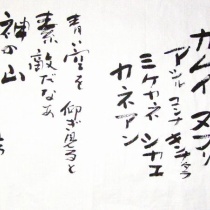 カムイ ヌプリ
アシル コンナ
ミケカネ シカエ
カネアン
青い空を 仰ぎ見ると
素敵だなあ
神の山